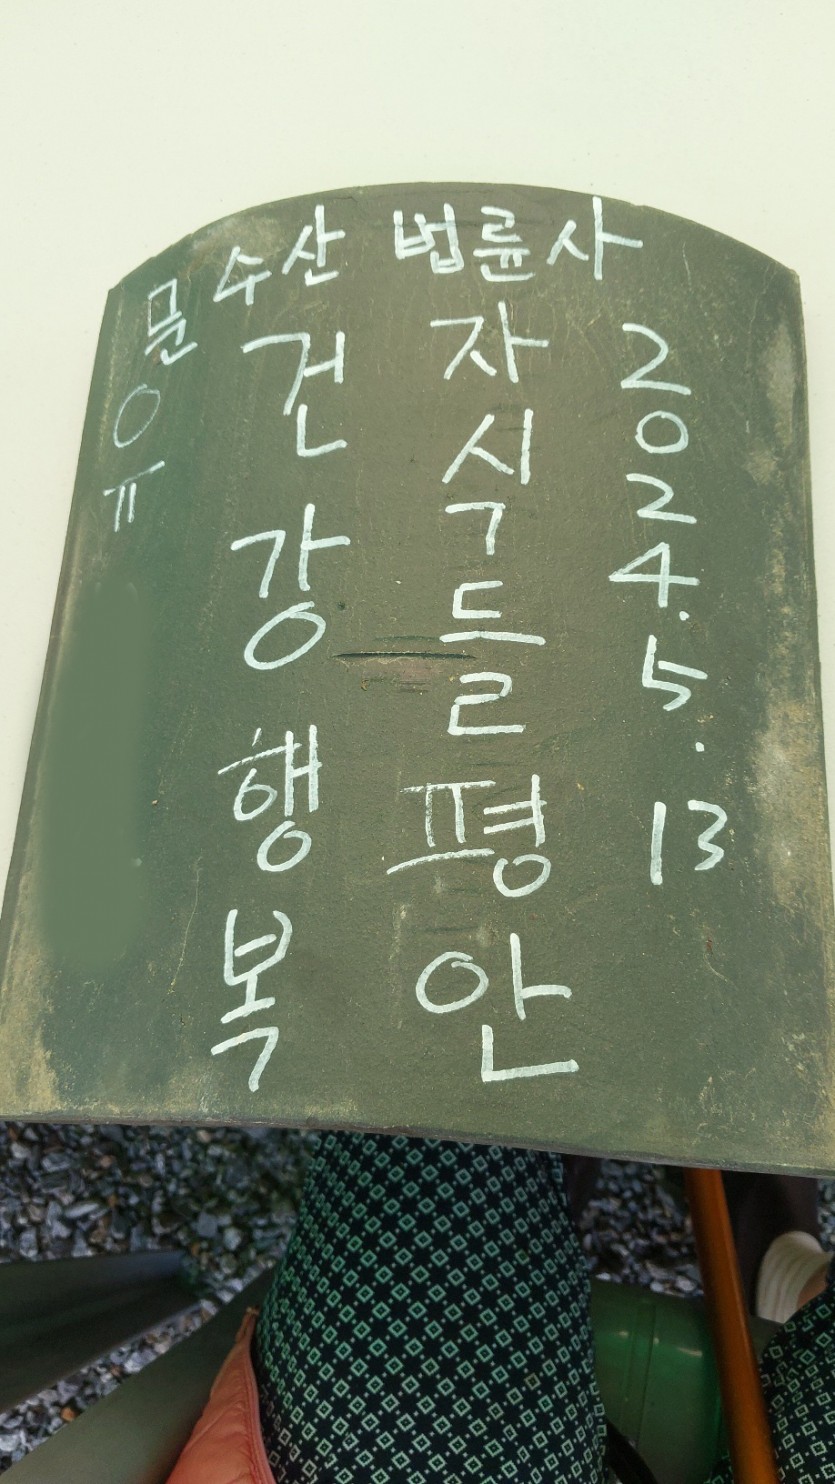 문수산 법륜사
유
건강 행복
자식들 평안
2024.5.13